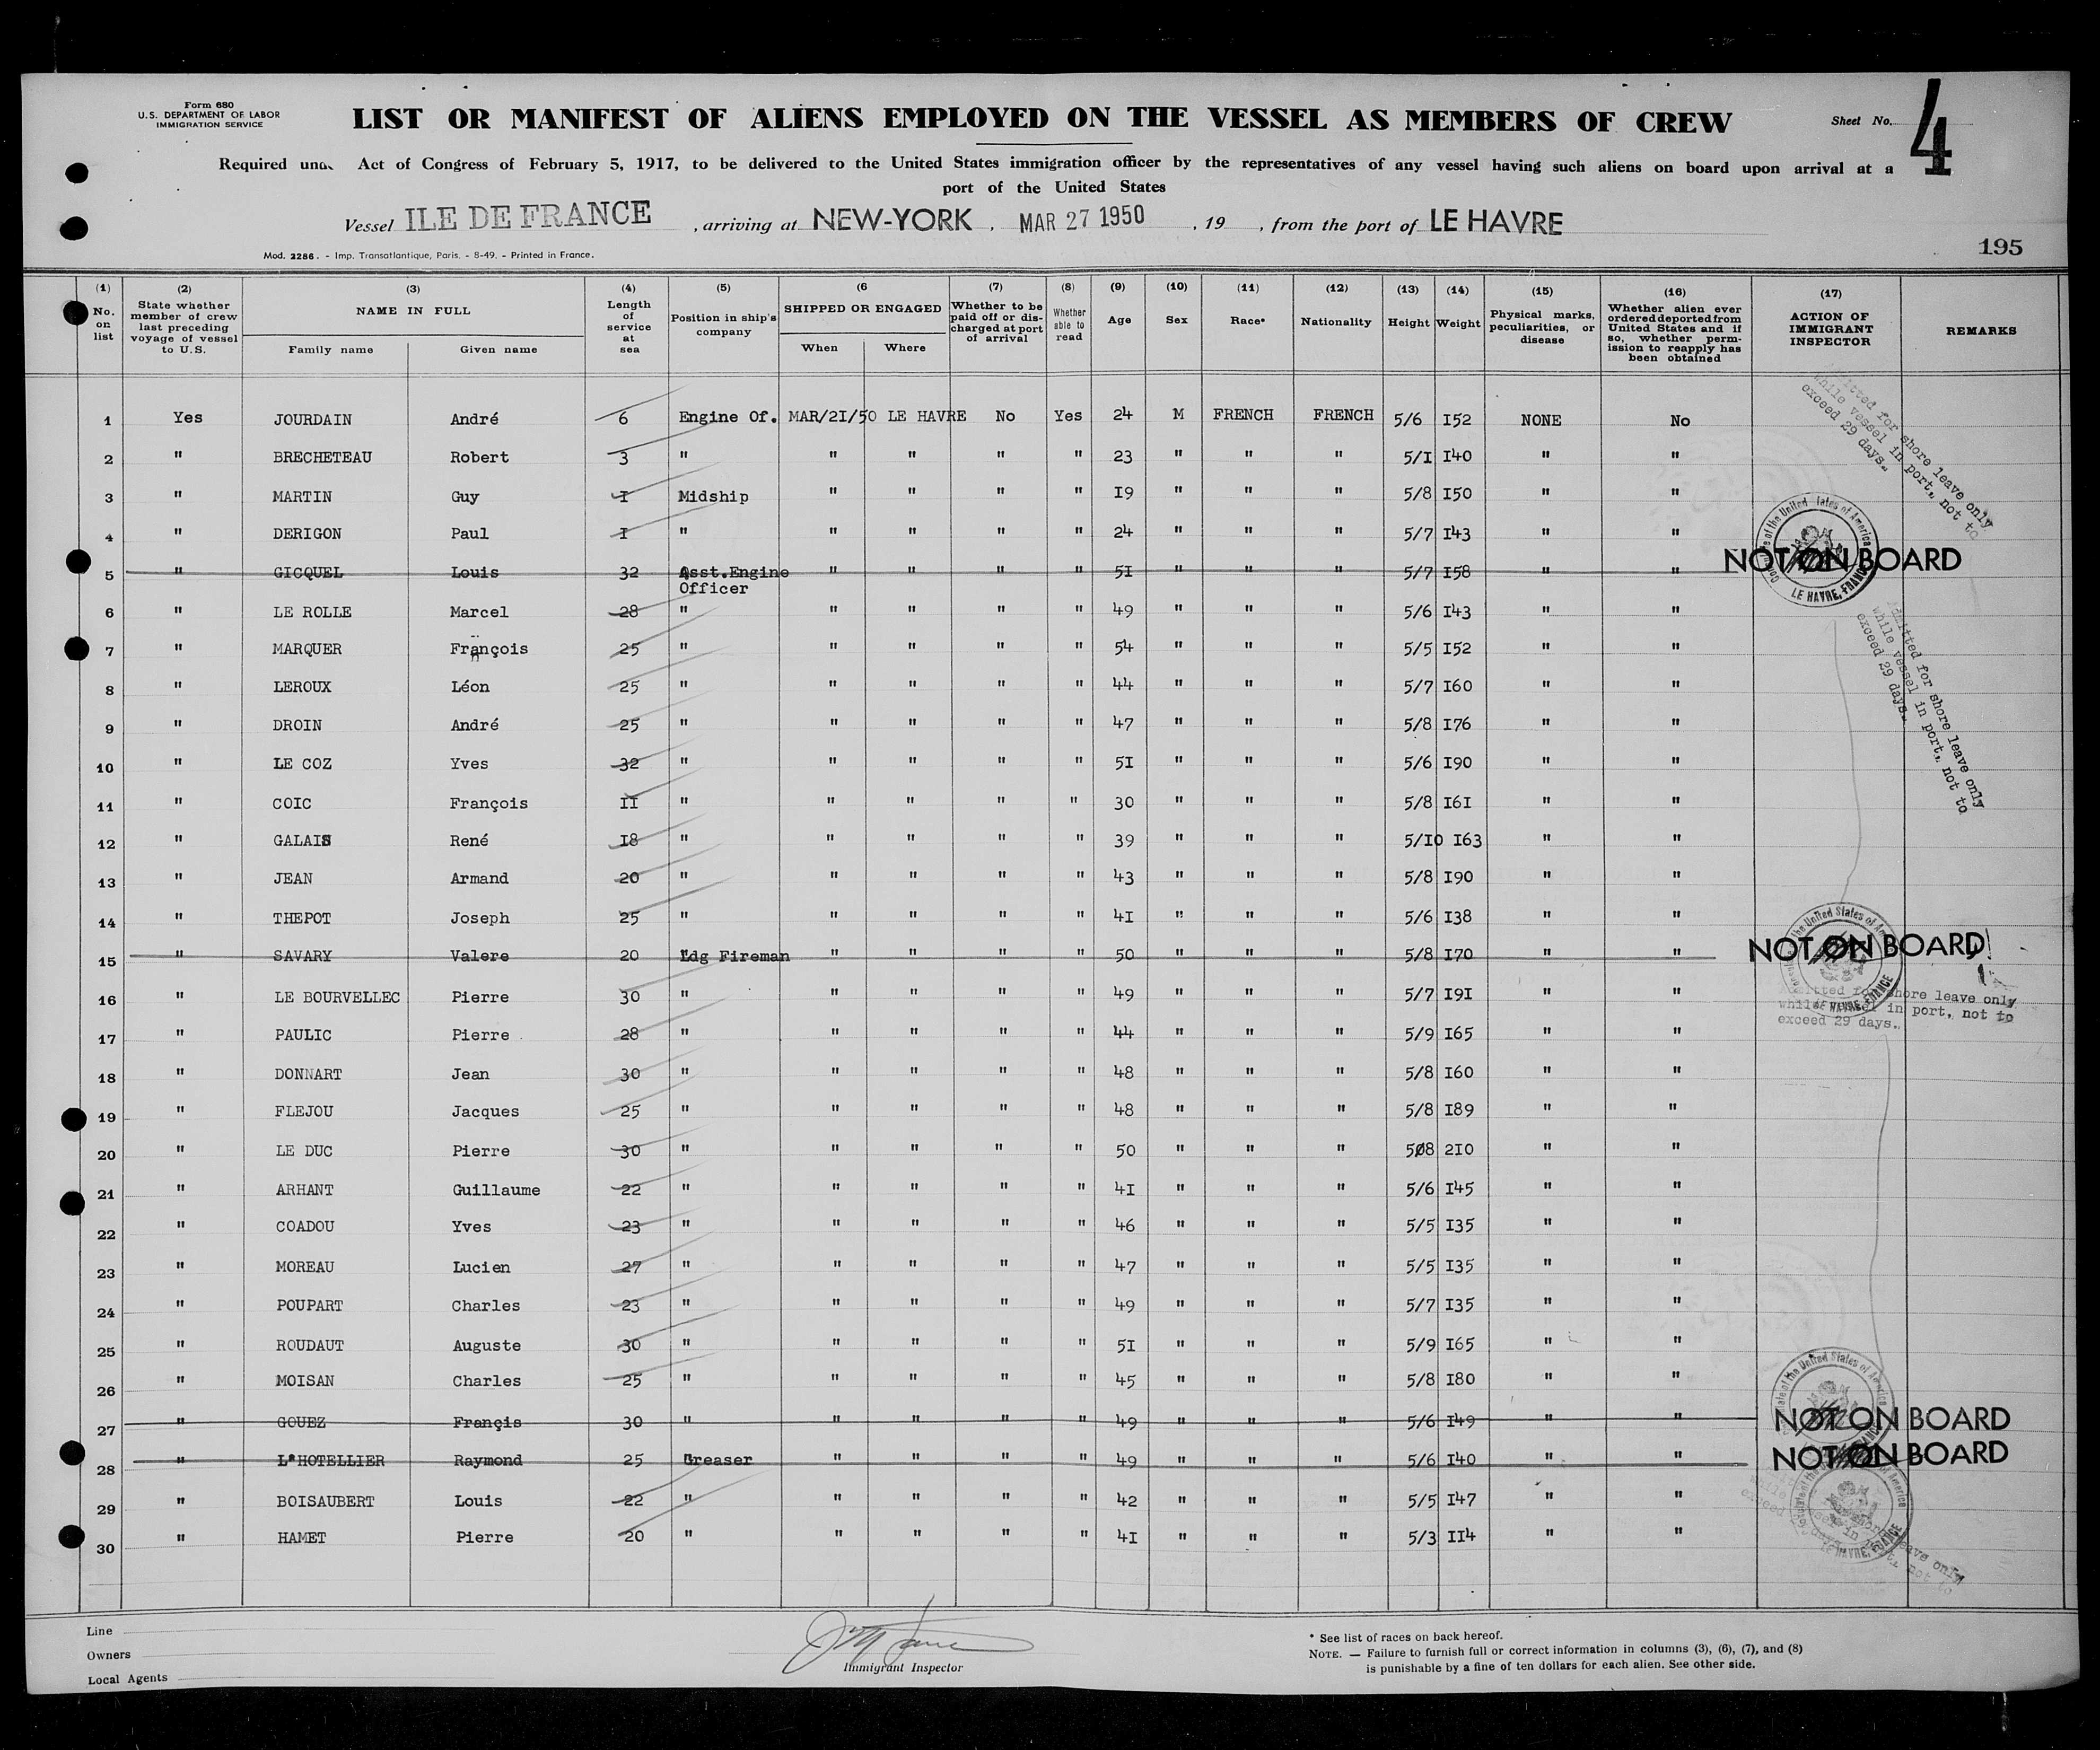 Form 680
U.S. DEPARTMENT OF LABOR
IMMIGRATION SERVICE
LIST OR MANIFEST OF ALIENS EMPLOYED ON THE VESSEL AS MEMBERS OF CREW
Sheet No. 4
Required und Act of Congress of February 5, 1917, to be delivered to the United States immigration officer by the representatives of any vessel having such aliens on board upon arrival at a
port of the United States
Vessel ILE DE FRANCE , arriving at NEW-YORK , MAR 27 1950 , 19 , from the port of LE HAVRE
195
Mod. 2286. - Imp. Transatlantique, Paris. - 8-49. - Printed in France.
(1) No. on list (2) State whether member of crew last preceding voyage of vessel to U.S. (3) NAME IN FULL Family name Given name (4) Length of service at sea (5) Position in ship's company (6 SHIPPED OR ENGAGED When Where (7) Whether to be paid off or dis-charged at port of arrival (8) Whether able to read (9) Age (10) Sex (11) Race* (12) Nationality (13) Height (14) Weight (15) Physical marks, peculiarities, or disease (16) Whether alien ever ordered deported from United States and if so, whether perm-ission to reapply has been obtained (17) ACTION OF IMMIGRANT INSPECTOR REMARKS
1 Yes JOURDAIN André 6 Engine Of. MAR/2I/50 LE HAVRE No Yes 24 M FRENCH FRENCH 5/6 I52 NONE No
2 " BRECHETEAU Robert 3 " " " " " 23 " " " 5/I I40 " "
3 " MARTIN Guy I Midship " " " " I9 " " " 5/8 I50 " "
4 " DERIGON Paul I " " " " " 24 " " " 5/7 I43 " "
5 " GICQUEL Louis 32 Asst.Engine Officer " " " " 5I " " " 5/7 I58 " " NOT ON BOARD
6 " LE ROLLE Marcel 28 " " " " " 49 " " " 5/6 I43 " "
7 " MARQUER François 25 " " " " " 54 " " " 5/5 I52 " "
8 " LEROUX Léon 25 " " " " " 44 " " " 5/7 I60 " "
9 " DROIN André 25 " " " " " 47 " " " 5/8 I76 " "
10 " LE COZ Yves 32 " " " " " 5I " " " 5/6 I90 " "
11 " COIC François II " " " " " 30 " " " 5/8 I6I " "
12 " GALAIS René I8 " " " " " 39 " " " 5/I0 I63 " "
13 " JEAN Armand 20 " " " " " 43 " " " 5/8 I90 " "
14 " THEPOT Joseph 25 " " " " " 4I " " " 5/6 I38 " "
15 " SAVARY Valere 20 Ldg Fireman " " " " 50 " " " 5/8 I70 " " NOT ON BOARD
16 " LE BOURVELLEC Pierre 30 " " " " " 49 " " " 5/7 I9I " "
17 " PAULIC Pierre 28 " " " " " 44 " " " 5/9 I65 " "
18 " DONNART Jean 30 " " " " " 48 " " " 5/8 I60 " "
19 " FLEJOU Jacques 25 " " " " " 48 " " " 5/8 I89 " "
20 " LE DUC Pierre 30 " " " " " 50 " " " 5/8 2I0 " "
21 " ARHANT Guillaume 22 " " " " " 4I " " " 5/6 I45 " "
22 " COADOU Yves 23 " " " " " 46 " " " 5/5 I35 " "
23 " MOREAU Lucien 27 " " " " " 47 " " " 5/5 I35 " "
24 " POUPART Charles 23 " " " " " 49 " " " 5/7 I35 " "
25 " ROUDAUT Auguste 30 " " " " " 5I " " " 5/9 I65 " "
26 " MOISAN Charles 25 " " " " " 45 " " " 5/8 I80 " "
27 " GOUEZ Françis 30 " " " " " 49 " " " 5/6 I49 " " NOT ON BOARD
28 " L'HOTELLIER Raymond 25 Greaser " " " " 49 " " " 5/6 I40 " " NOT ON BOARD
29 " BOISAUBERT Louis 22 " " " " " 42 " " " 5/5 I47 " "
30 " HAMET Pierre 20 " " " " " 4I " " " 5/3 II4 " "
Admitted for shore leave only
while vessel in port, not to
exceed 29 days.
Consulate of the United States of America
LE HAVRE, FRANCE
Admitted for shore leave only
while vessel in port, not to
exceed 29 days.
of the United States of America
LE HAVRE, FRANCE
shore leave only
in port, not to
exceed 29 days.
of the United States of America
of America
LE HAVRE, FRANCE
leave only
not to
Line
Owners
Local Agents
Immigrant Inspector
* See list of races on back hereof.
NOTE. — Failure to furnish full or correct information in columns (3), (6), (7), and (8)
is punishable by a fine of ten dollars for each alien. See other side.